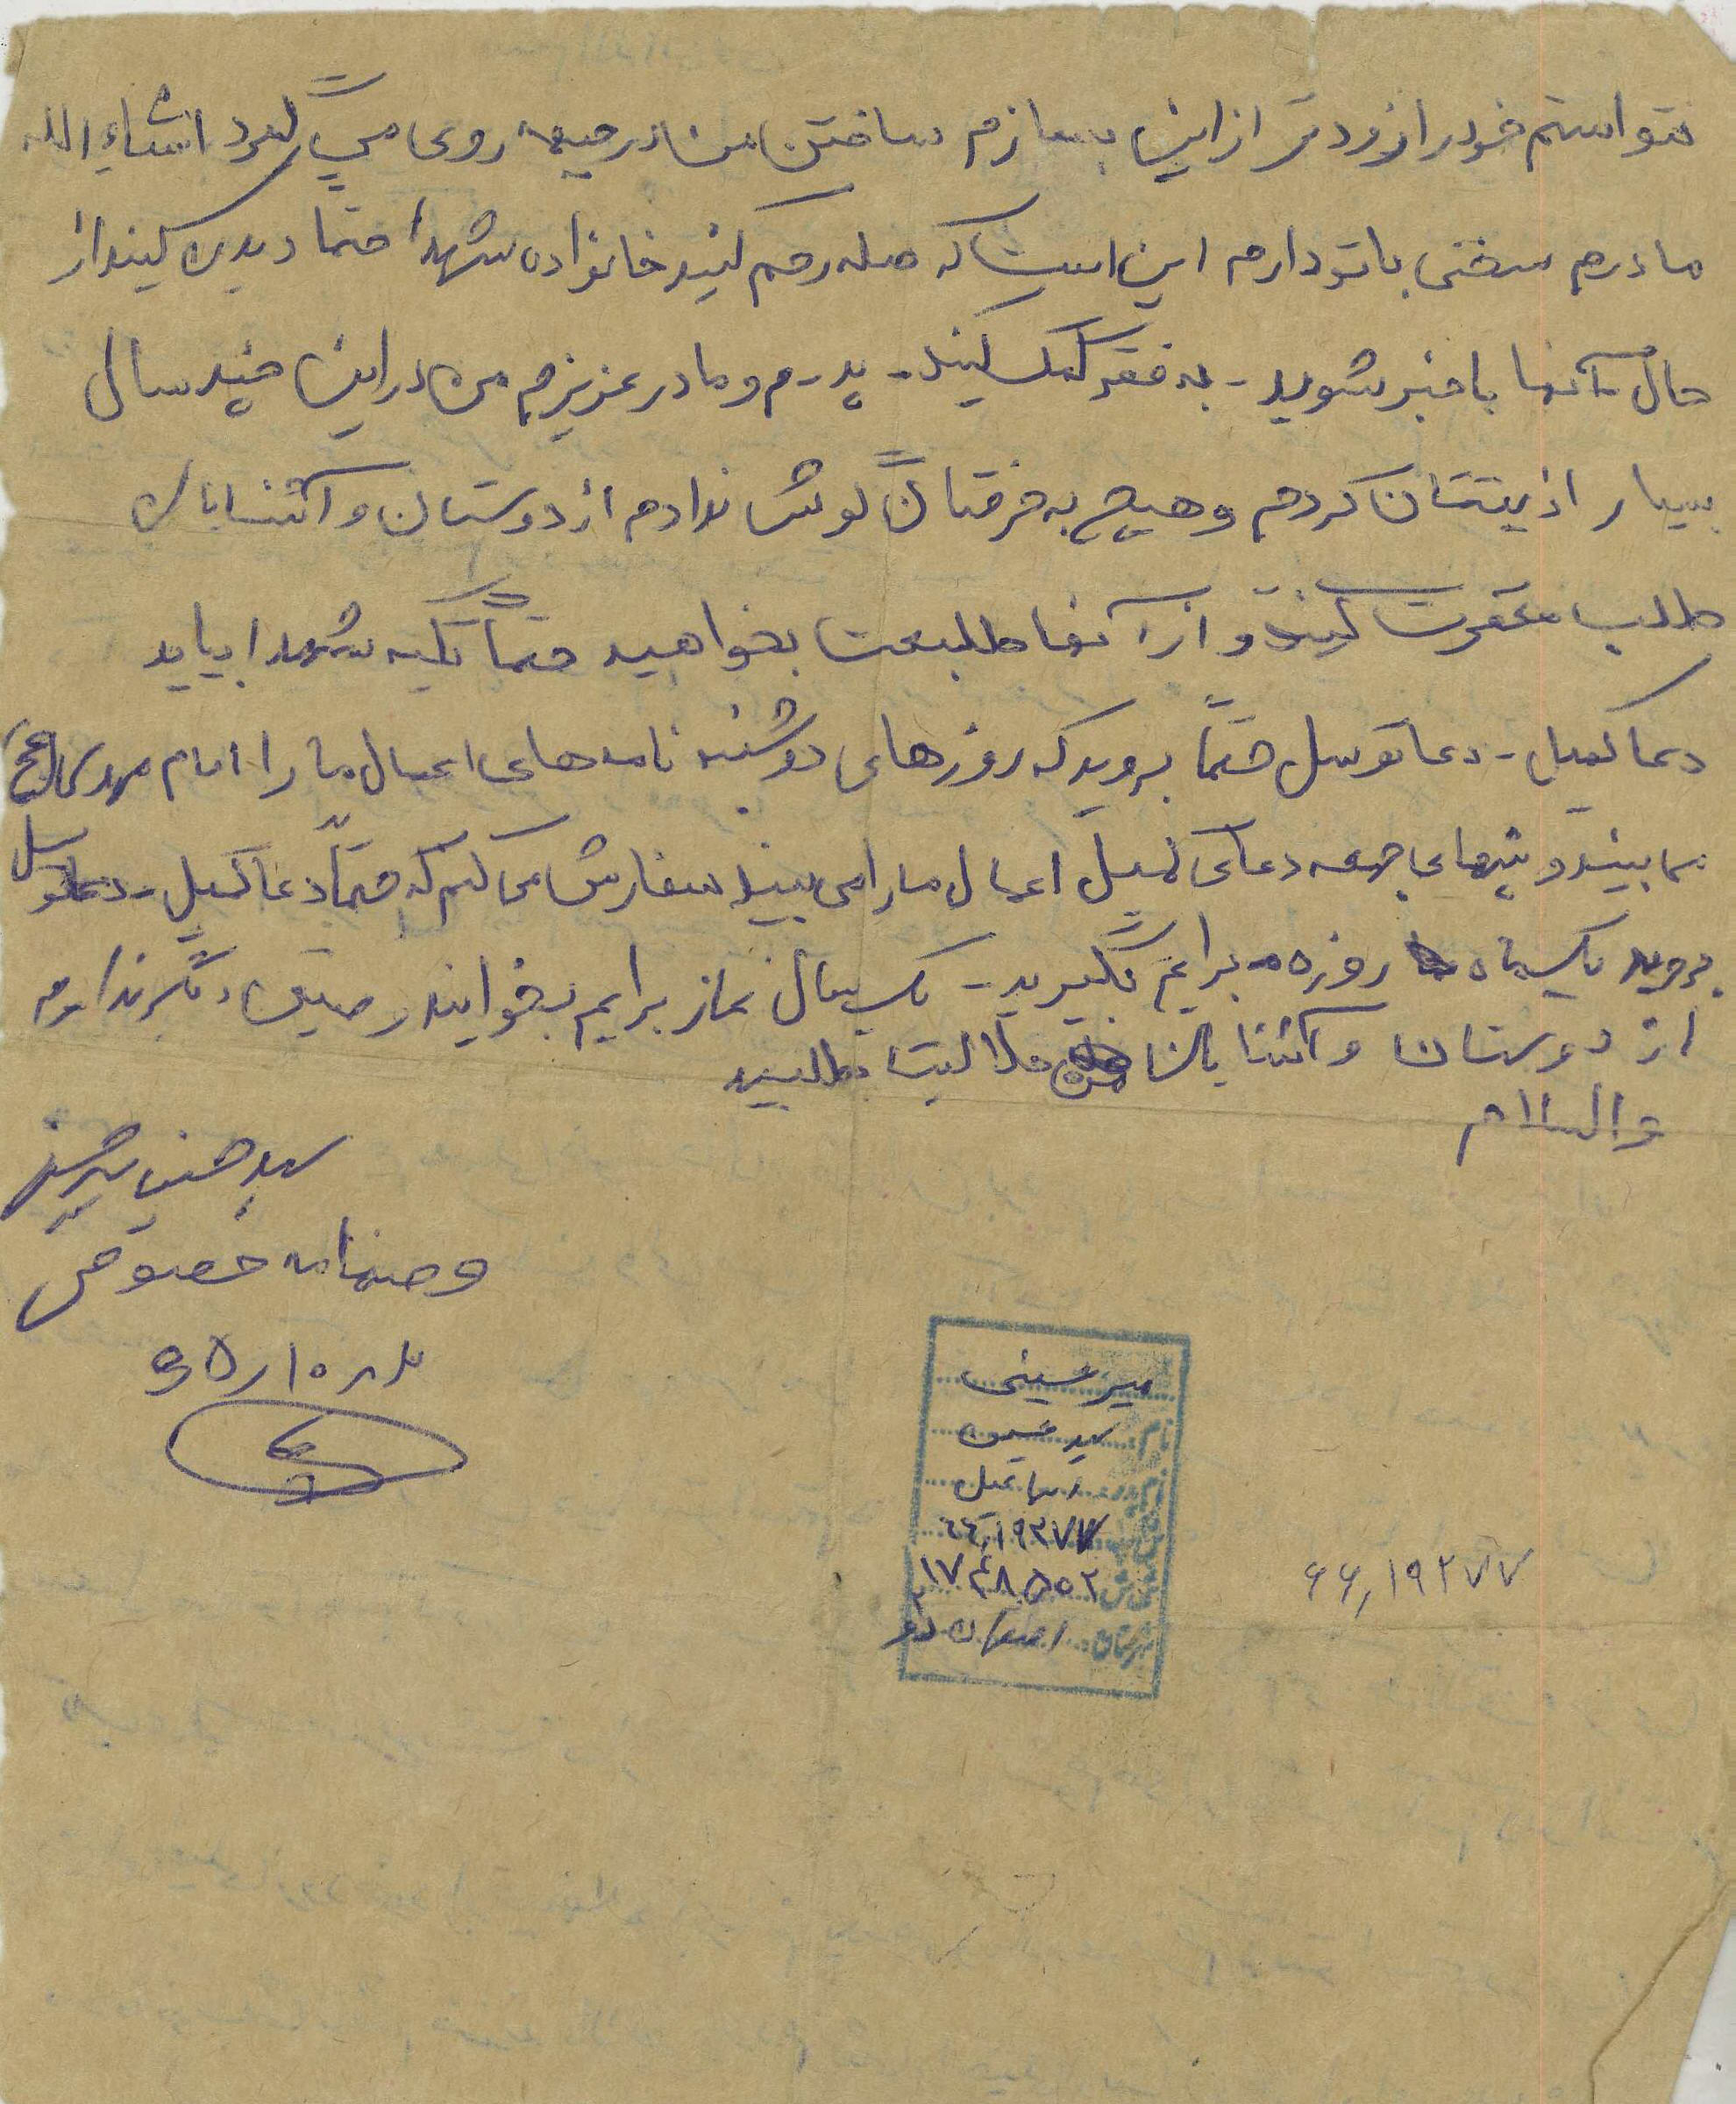 نتواستم خود را زودتر از این بسازم ساختن من در جبهه روی می گیرد انشاءالله
مادرم سخنی با تو دارم این است که صله رحم کنید خانواده شهدا حتما دیدن کنید از
حال آنها با خبر شوید - به فقیر کمک کنید - پدرم و مادر عزیزم من در این چند سال
بسیار اذیتتان کردم و هیچ به حرفتان گوش ندادم از دوستان و آشنایان
طلب مغفرت کنید و از آنها طلبعت بخواهید حتماً تکیه شهدا بیاید
دعا کمیل - دعا توسل حتماً بروید که روزهای دوشنبه نامه های اعمال ما را امام مهدی عج
می بیند و شبهای جمعه دعای کمیل اعمال ما را می بیند سفارش می کنم که حتماً دعا کمیل - دعا توسل
بروید یکماه روزه برایم بگیرید - یکسال نماز برایم بخوانید وصیتی دیگر ندارم
از دوستان و آشنایان حلالیت بطلبید
والسلام
سید حسین میرحسینی
وصیتنامه خصوصی
میرحسینی
نام: سید حسین
نام پدر: اسماعیل
۶۶٫۱۹۲۷۷
ش ش
شهرستان: اصفهان
۶۶٫۱۹۲۷۷